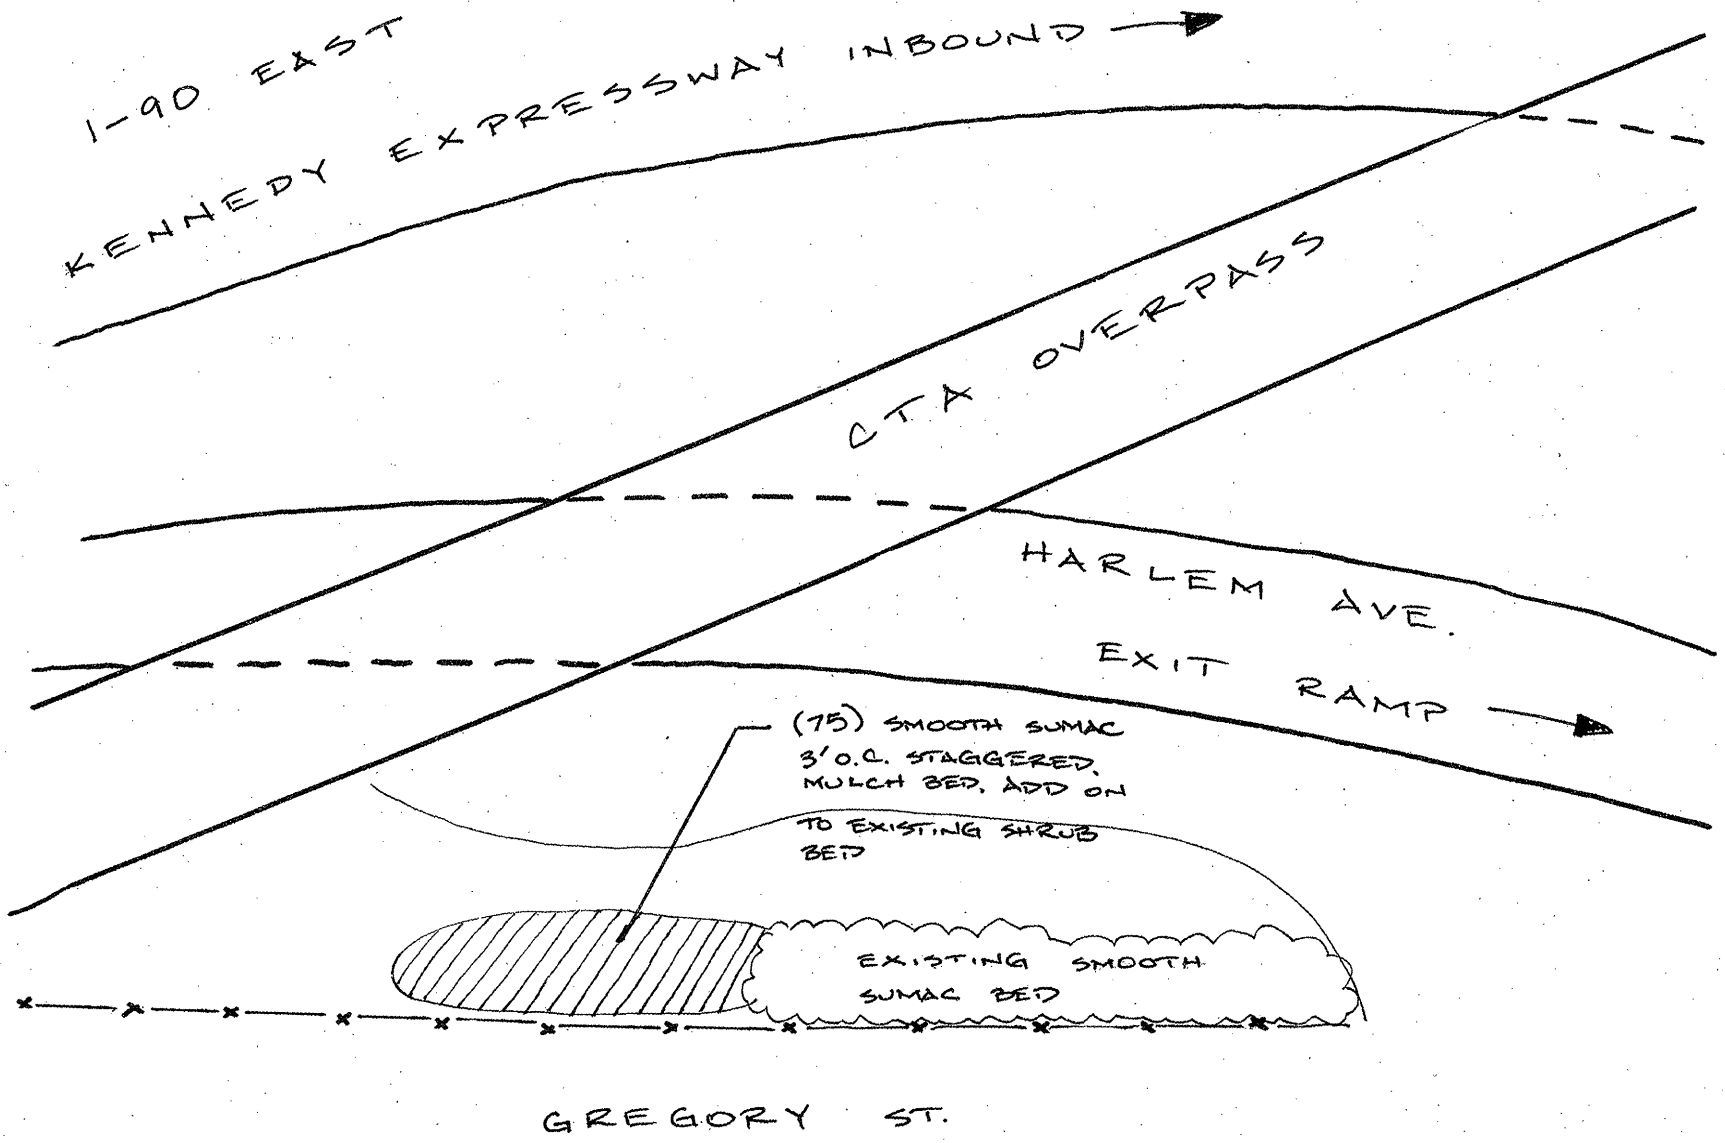 I-90 EAST
KENNEDY EXPRESSWAY INBOUND
CTA OVERPASS
HARLEM AVE.
EXIT RAMP
(75) SMOOTH SUMAC
3' O.C. STAGGERED.
MULCH BED. ADD ON
TO EXISTING SHRUB
BED
EXISTING SMOOTH
SUMAC BED
GREGORY ST.